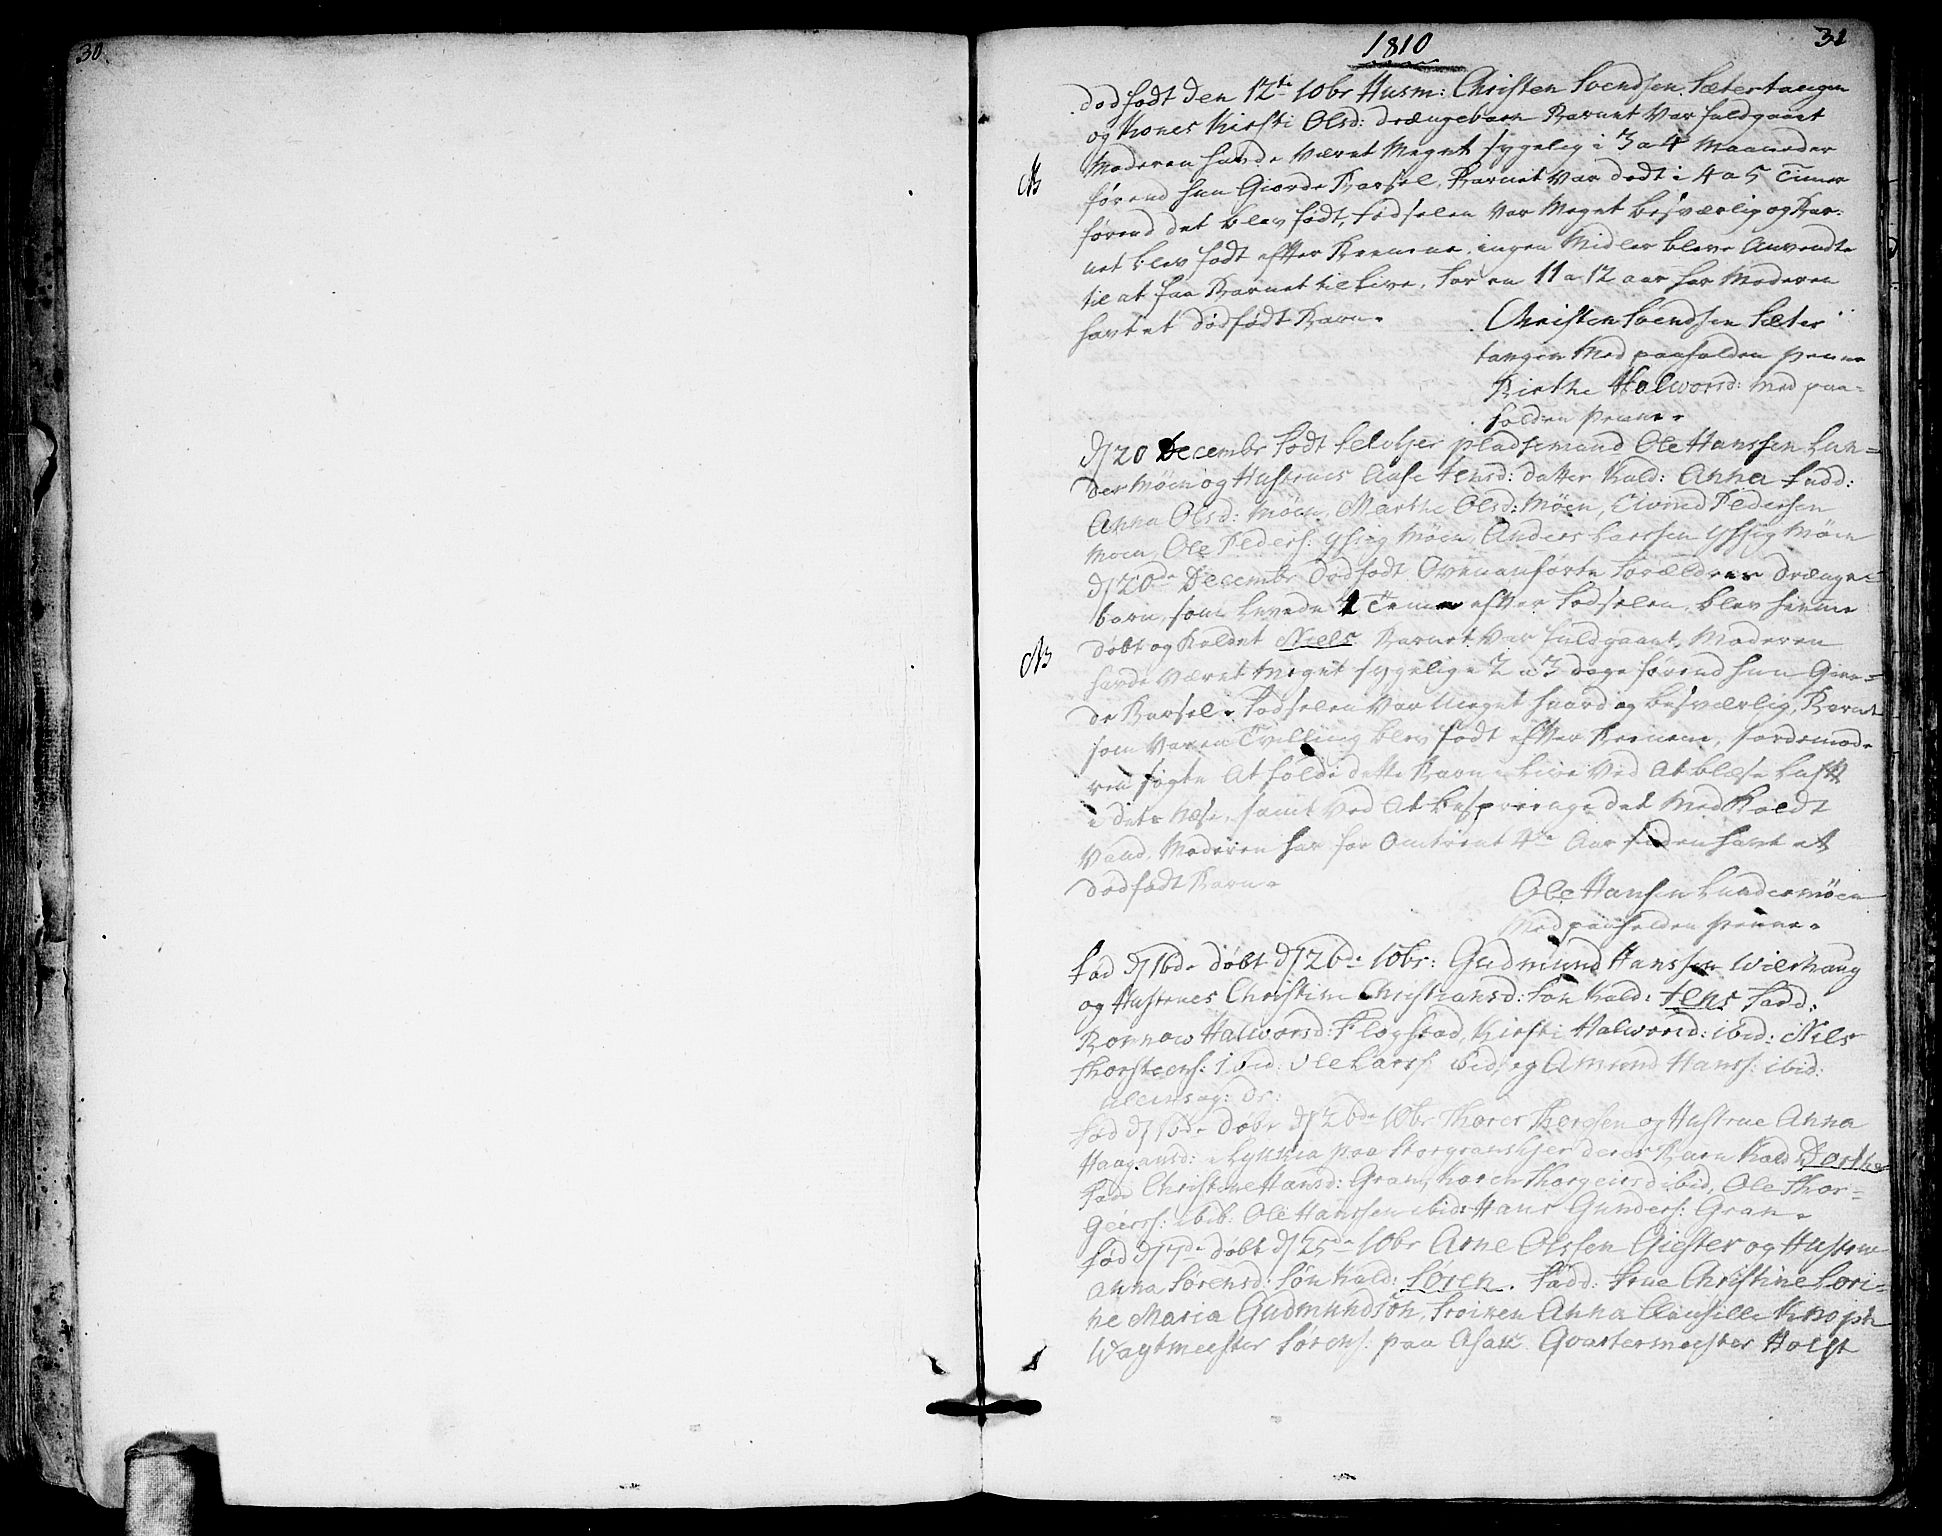 30.
31
1810
dødfødt den 12te 10br Husm: Christen Svendsen Sætertangen
og Kones Kirsti Olsd: drængebarn Barnet var fuldgaaet
Moderen havde været Meget sygelig i 3 a 4 Maaneder
NB
førend hun Giorde Barsel, Barnet var dødt i 4 a 5 Timer
førend det blev født, fødselen var Meget besværlig og Bar:
net blev født efter Beenene, ingen Midler bleve Anvendte
til at faa Barnet til Live, for en 11 a 12 aar har Moderen
havt et dødfødt Barn.
Christen Svendsen Sæter
tangen Med paaholden Penne
Birthe Halvorsd: Med paa-
holden Penne.
d 20 Decembr født Selvejer pladsemand Ole Hanssen Lun-
der Møen og Hustrues Aase Jensd: datter kald: Anna Fadd:
Anna Olsd: Møen, Marthe Olsd: Møen, Eivind Pedersen
Moen, Ole Peders: Møen, Anders Larssen Møen
d 20de Decembr dødfødt Ovenanførte Forældres drænge-
barn, som levede Time efter fødselen, blev hieme
NB
døbt og kaldet Niels Barnet var fuldgaaet, Moderen
havde været Meget sygelig 2 a 3 dage førend hun Gior-
de Barsel. Fødselen var Meget haard og besværlig, Barnet
som var en Tvilling blev født efter Beenene, Jordemode
ren søgte At holde dette Barn i Live ved At blæse Luft
i dets Næse, samt ved At besprænge det Med Koldt
Vand, Moderen har for Omtrent 4re Aar siden havt et
dødfødt Barn.
Ole Hansen Lundermøen
Med paaholden Penne.
Fød d 16de døbt d 26de 10br: Gudmund Hanssen Wilshaug
og Hustrues Christine Christiansd: Søn kald: Jens Fadd:
Halvorsd: Flogstad, Kirsti Halvorsd: ibid: Niels
Thorsteens: ibid: Ole Larss ibid, og Amund Hanss: ibid:
Ullensag: Dr:
Fød d 16de døbt d 26de 10br Thorer og Hustrue Anna
Haagansd: i Lykkia paa deres Barn kald Dorthe
Fadd Christine Hansd: Gran, Karen Thorgeirsd ibid, Ole Thor-
geirss: ibid: Ole Hanssen ibid: Hans Gunders: Gran.
Fød d 7de døbt d 25de 10br Arne Olssen Giester og Hustrue
Anna Sørensd: Søn kald: Søren. Fadd: Frue Christine Lovi-
ne Maria Gudmundson, Frøiken Anna Knoph
Wagtmeister Sørens: paa Asak Qvartermeister Holst